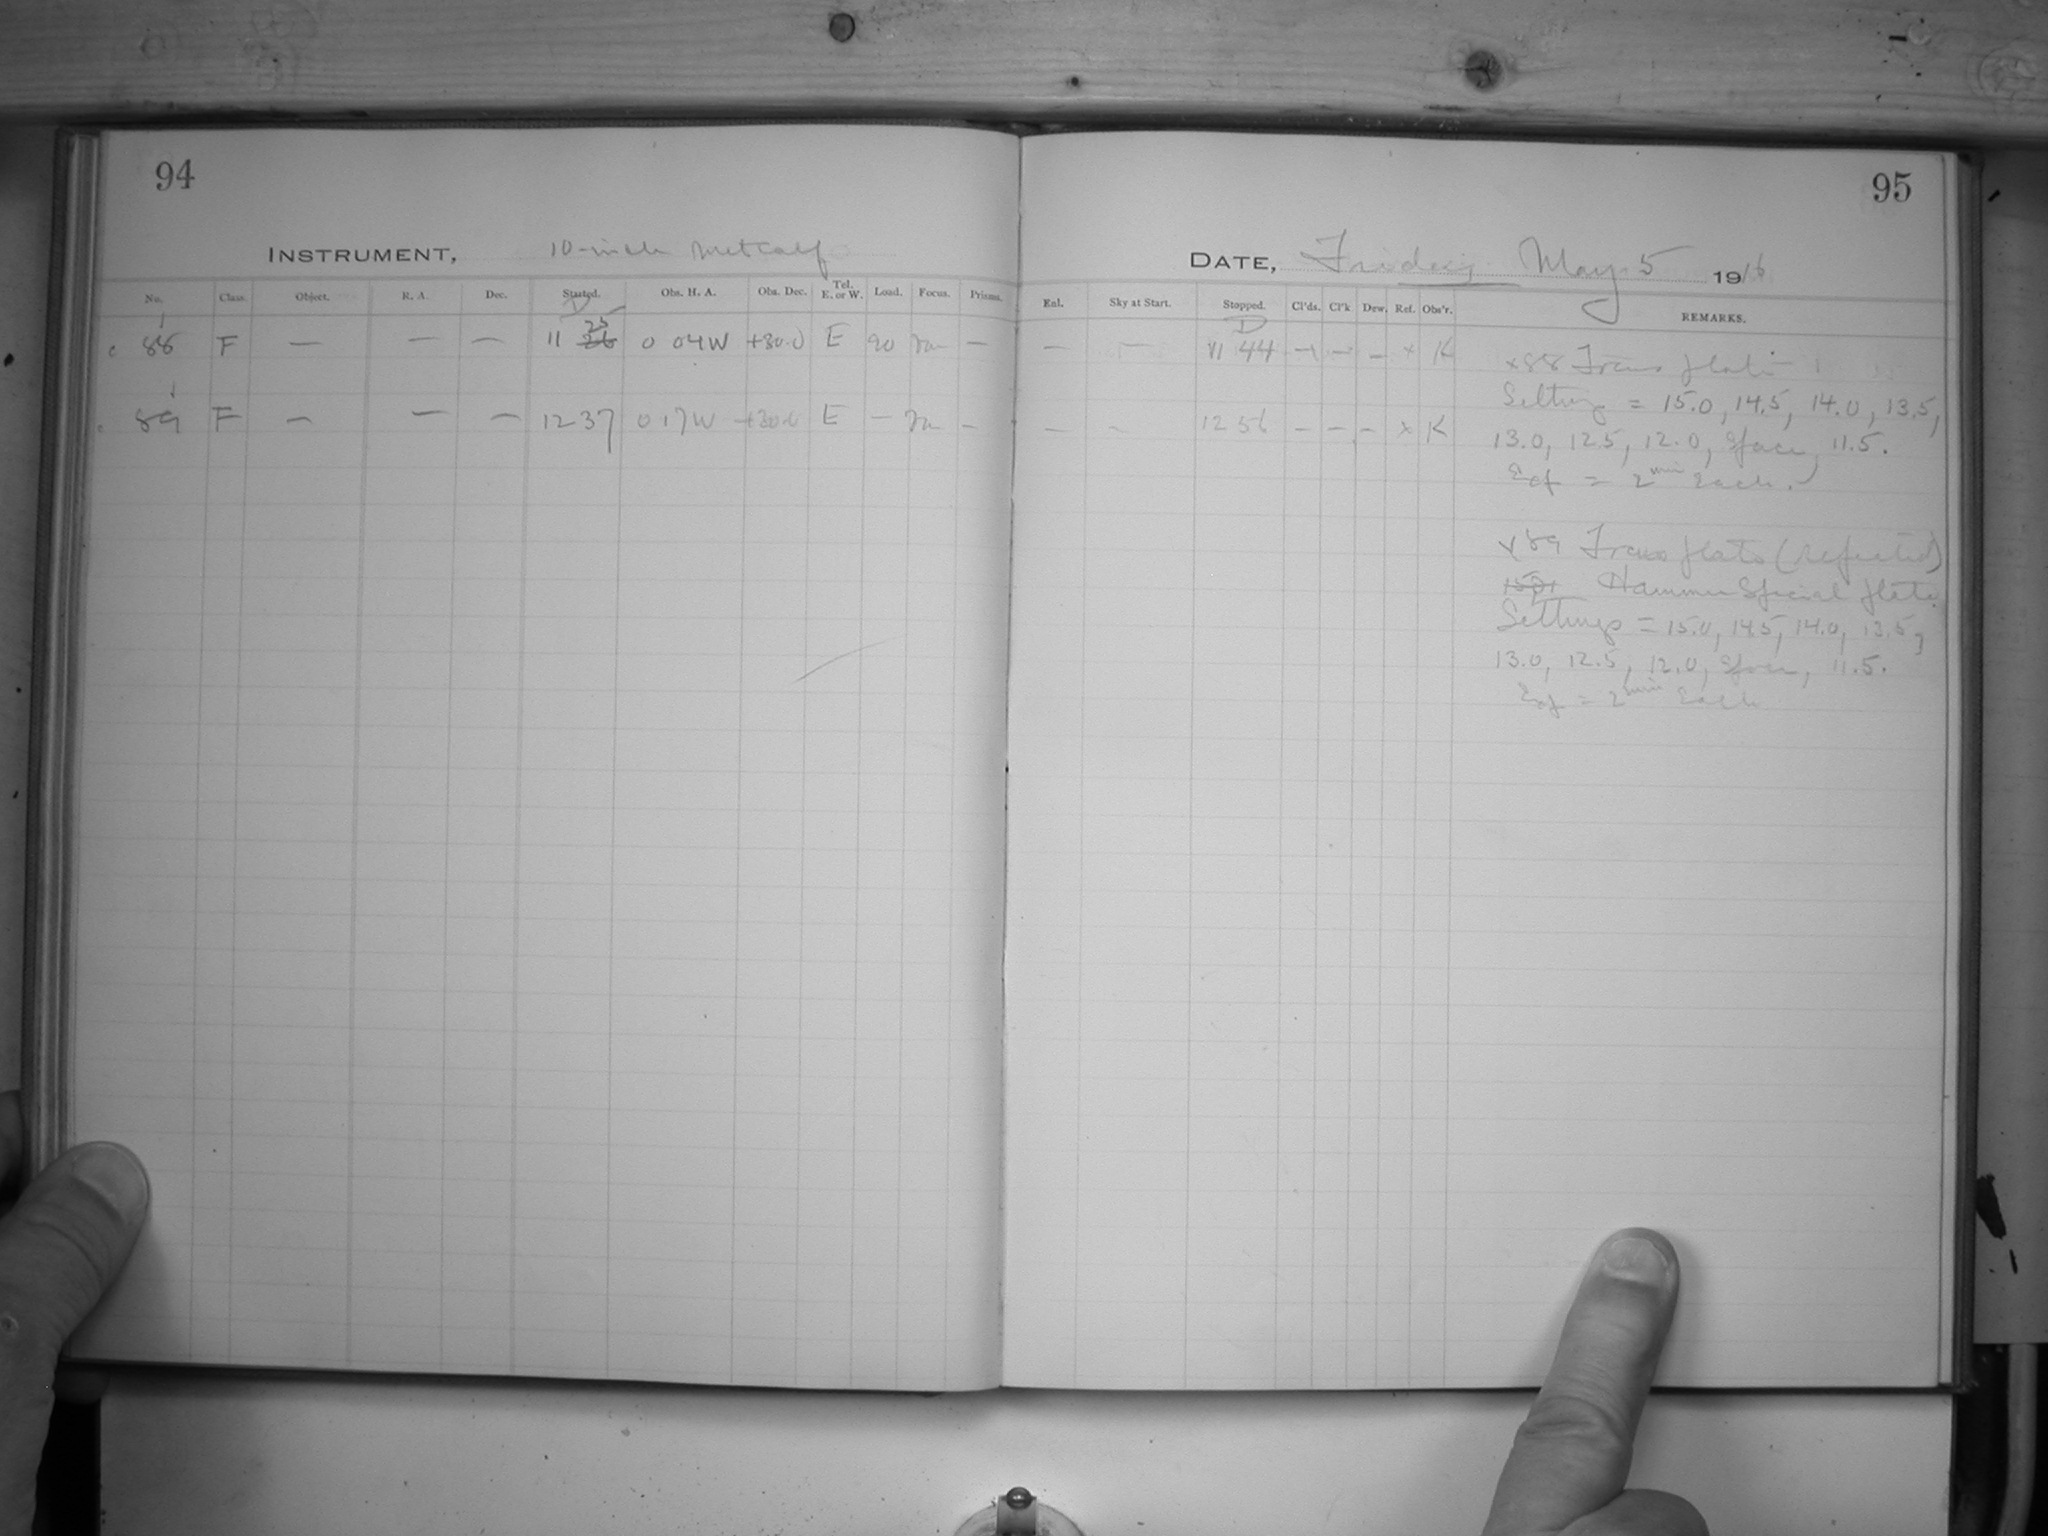 94
95
INSTRUMENT, 10-inch Metcalf
DATE, Friday May 5 1916
No. Class. Object. R. A. Dec. Started. Obs. H. A. Obs. Dec. Tel. E. or W. Load. Focus. Prisms. Enl. Sky at Start. Stopped. Cl'ds. Cl'k Dew. Ref. Obs'r. REMARKS.
c 88 F — — — 11 26 25 0 04W +30.0 E 90 — — — 11 44 — — — × K
89 F — — — 12 37 0 17W +30.0 E — — — — 12 56 — — — × K
×88 Trans plate
Setting = 15.0, 14.5, 14.0, 13.5,
13.0, 12.5, 12.0, space, 11.5.
Exp = 2 min Each.
×89 Trans plate (refected)
Hammer Special plate.
Settings = 15.0, 14.5, 14.0, 13.5,
13.0, 12.5, 12.0, space, 11.5.
Exp = 2 min Each